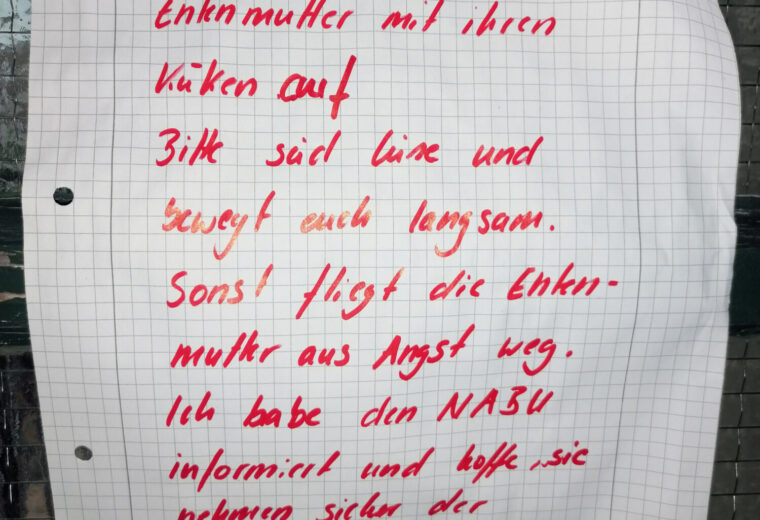 Entenmutter mit ihren
Küken auf
Bitte seid leise und
bewegt euch langsam.
Sonst fliegt die Enten-
mutter aus Angst weg.
Ich habe den NABU
informiert und hoffe, sie
nehmen sicher der